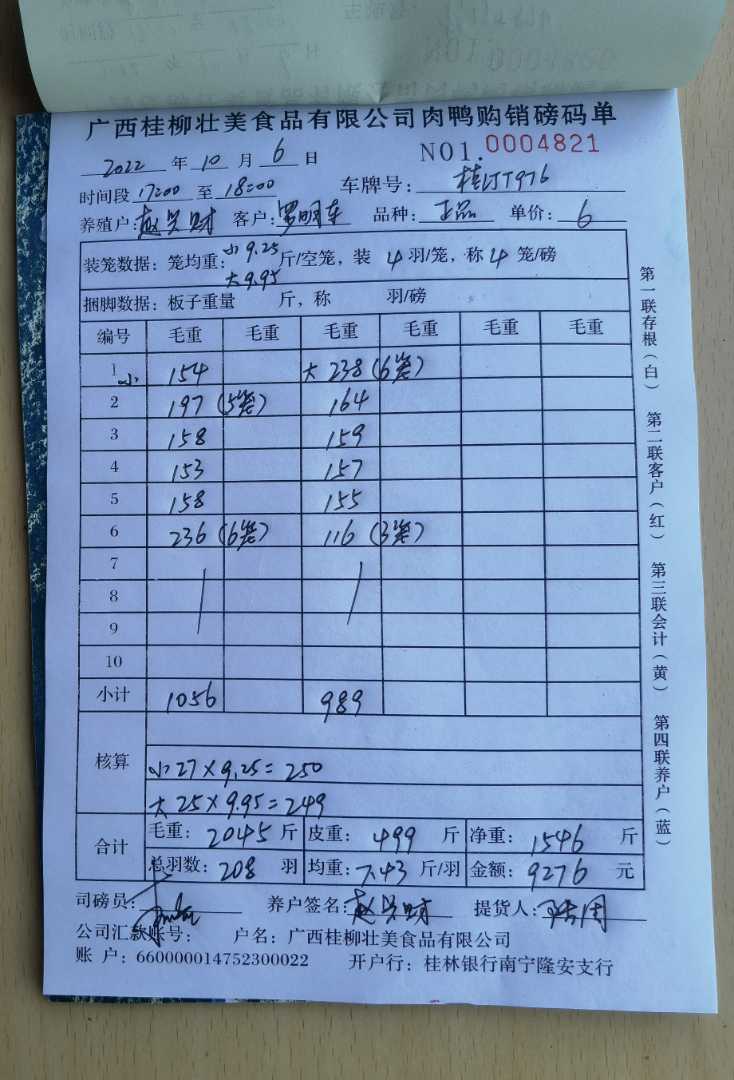 广西桂柳壮美食品有限公司肉鸭购销磅码单
2022 年 10 月 6 日 NO1: 0004821
时间段 17:00 至 18:00 车牌号:
养殖户: 客户: 罗明车 品种: 正品 单价: 6
装笼数据:笼均重: 小 9.25 大 9.95 斤/空笼,装 4 羽/笼,称 4 笼/磅
捆脚数据:板子重量 斤,称 羽/磅
编号 毛重 毛重 毛重 毛重 毛重 毛重
1 小 154 大 238 (6笼)
2 197 (5笼) 164
3 158 159
4 153 157
5 158 155
6 236 (6笼) 116 (3笼)
7
8
9
10
小计 1056 989
核算
小 27×9.25=250
大 25×9.95=249
合计
毛重: 2045 斤 皮重: 499 斤 净重: 1546 斤
总羽数: 208 羽 均重: 7.43 斤/羽 金额: 9276 元
司磅员: 养户签名: 提货人:
公司汇款账号: 户名:广西桂柳壮美食品有限公司
账 户:660000014752300022 开户行:桂林银行南宁隆安支行
第一联存根(白) 第二联客户(红) 第三联会计(黄) 第四联养户(蓝)